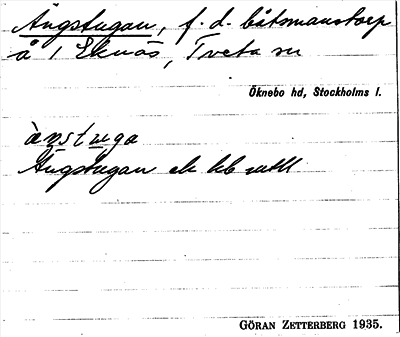 Ängstugan, f. d. båtsmanstorp
å 1 Eknäs, Tveta sn
Öknebo hd, Stockholms l.
ànstuga
Ängstugan ek kb
GÖRAN ZETTERBERG 1935.